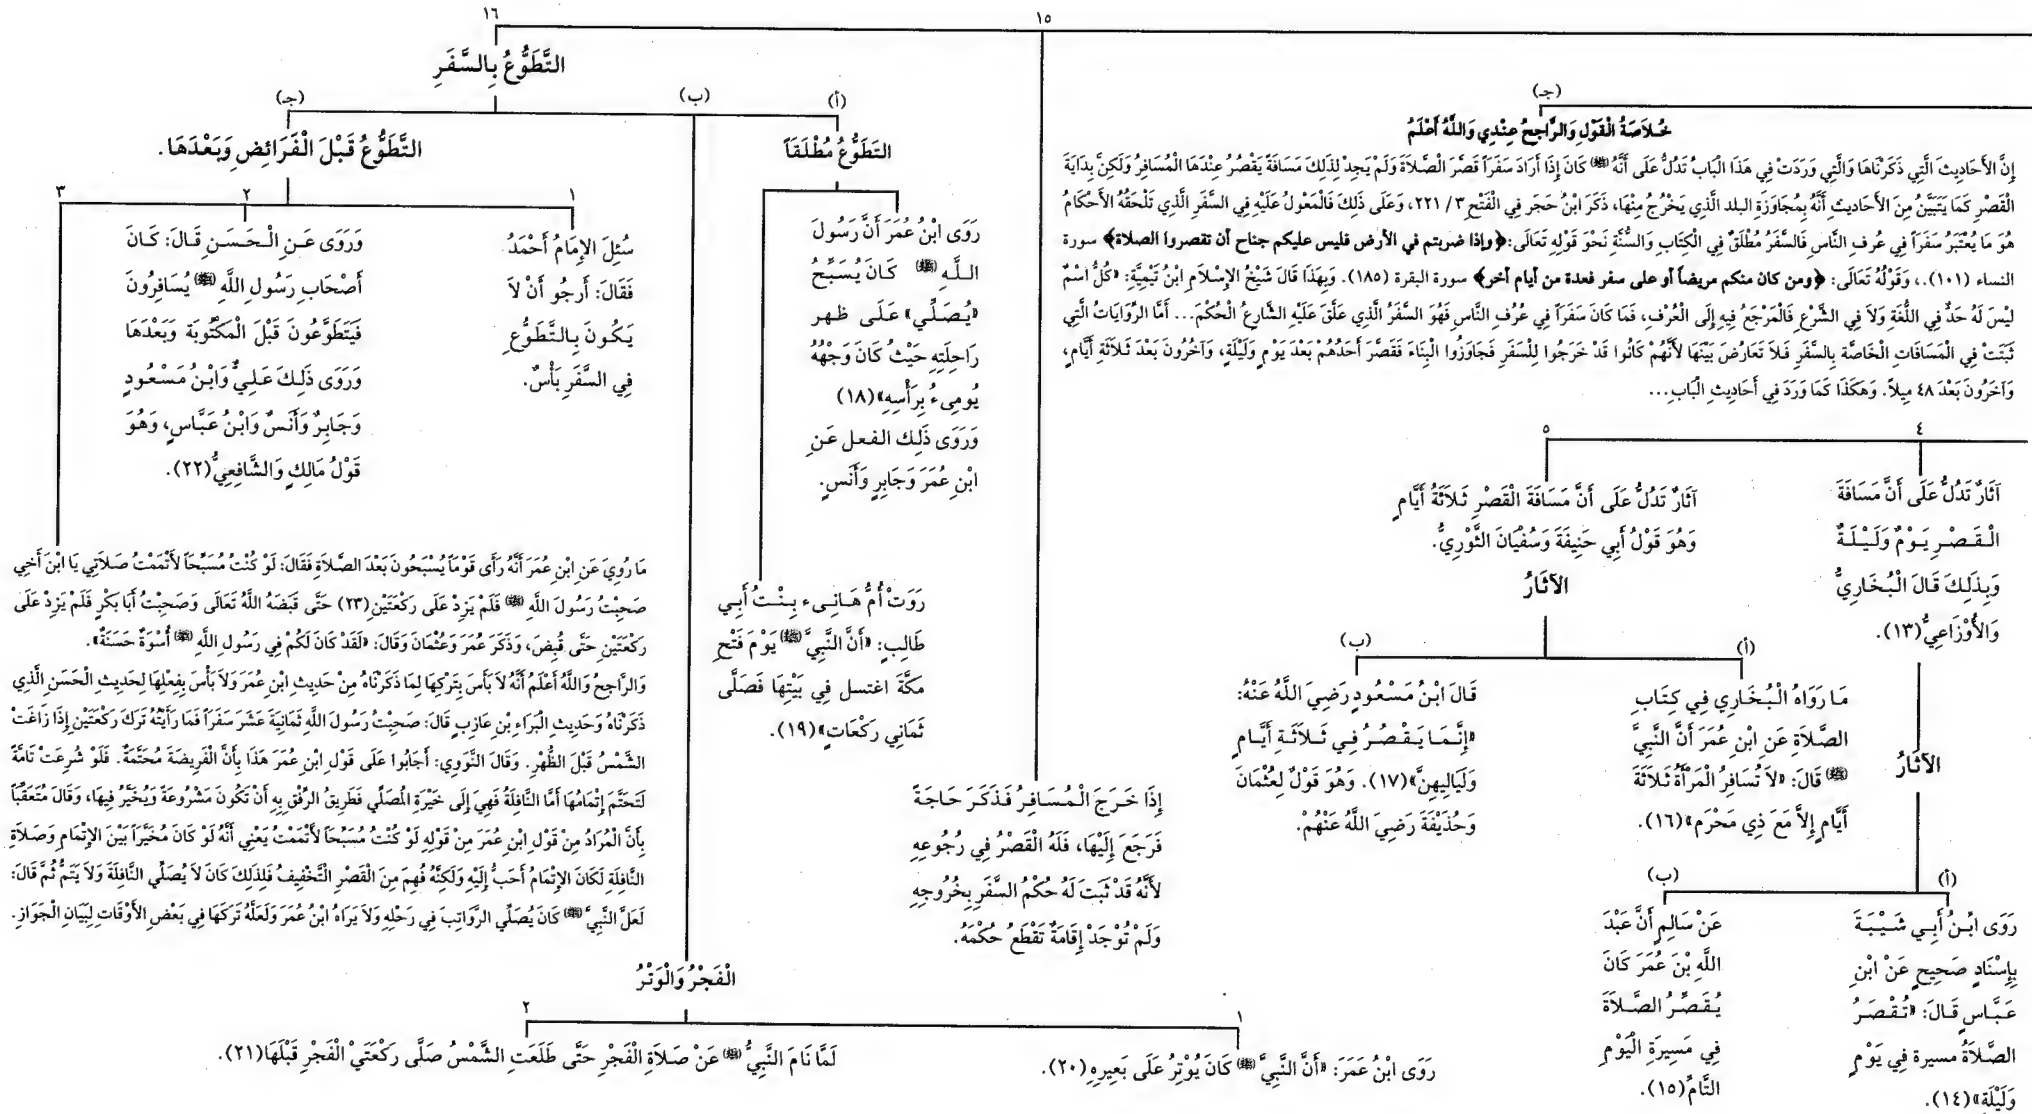 ١٥
(جـ)
خُلاَصَةُ الْقَوْلِ وَالرَّاجِحُ عِنْدِي وَاللَّهُ أَعْلَمُ
إِنَّ الأَحَادِيثَ الَّتِي ذَكَرْنَاهَا وَالَّتِي وَرَدَتْ فِي هَذَا الْبَابِ تَدُلُّ عَلَى أَنَّهُ ﷺ كَانَ إِذَا أَرَادَ سَفَرَاً قَصَّرَ الصَّلاَةَ وَلَمْ يَحِدْ لِذَلِكَ مَسَافَةً يَقْصُرُ عِنْدَهَا الْمُسَافِرُ وَلَكِنَّ بِدَايَةَ
الْقَصْرِ كَمَا يَتَبَيَّنُ مِنَ الأَحَادِيثِ أَنَّهُ بِمُجَاوَزَةِ البلد الَّذِي يَخْرُجُ مِنْهَا، ذَكَرَ ابْنُ حَجَر فِي الْفَتْحِ ٣/ ٢٢١، وَعَلَى ذَلِكَ فَالْمَعْوُلُ عَلَيْهِ فِي السَّفَرِ الَّذِي تَلْحَقُهُ الأَحْكَامُ
هُوَ مَا يُعْتَبَرُ سَفَرَاً فِي عُرفِ النَّاسِ فَالسَّفَرُ مُطْلَقٌ فِي الْكِتَابِ وَالسُّنَّةِ نَحْوَ قَوْلِهِ تَعَالَى: ﴿وإذا ضربتم في الأرض فليس عليكم جناح أن تقصروا الصلاة﴾ سورة
النساء (١٠١).، وَقَوْلُهُ تَعَالَى: ﴿ومن كان منكم مريضاً أو على سفر فعدة من أيام أخر﴾ سورة البقرة (١٨٥). وَبِهَذَا قَالَ شَيْخُ الإِسْلاَمِ ابْنُ تَيْمِيَّةِ: «كُلُّ اسْمٌ
لَيْسَ لَهُ حَدٌّ فِي اللُّغَةِ وَلاَ فِي الشَّرْعِ فَالْمَرْجَعُ فِيهِ إِلَى الْعُرْفِ، فَمَا كَانَ سَفَرَاً فِي عُرُفِ النَّاسِ فَهُوَ السَّفَرُ الَّذِي عَلَّقَ عَلَيْهِ الشَّارِعُ الْحُكْمَ... أَمَّا الرَّوَايَاتُ الَّتِي
ثَبَتَتْ فِي الْمَسَافَاتِ الْخَاصَّةِ بِالسَّفَرِ فَلاَ تَعَارُضَ بَيْنَهَا لأَنَّهُمْ كَانُوا قَدْ خَرَجُوا لِلْسَفَرِ فَجَاوَزُوا الْبِنَاءَ فَقَصَّرَ أَحَدُهُمْ بَعْدَ يَوْمٍ وَلَيْلَةٍ، وَآخَرُونَ بَعْدَ ثَلاَثَةِ أَيَّامٍ،
وَآخَرُونَ بَعْدَ ٤٨ مِيلاً. وَهَكَذَا كَمَا وَرَدَ فِي أَحَادِيثِ الْبَابِ...
٤
٥
آثَارٌ تَدُلُّ عَلَى أَنَّ مَسَافَةَ
الْقَصْرِ يَوْمٌ وَلَيْلَةٌ
وَبِذَلِكَ قَالَ الْبُخَارِيُّ
وَالأَوْزَاعِيُّ(١٣).
الآثَارُ
(أ)
(ب)
رَوَى ابْنُ أَبِي شَيْبَةَ
بِإِسْنَادٍ صَحِيحٍ عَنْ ابْنِ
عَبَّاسٍ قَالَ: «تُقْصَرُ
الصَّلاَةُ مسيرة فِي يَوْمٍ
وَلَيْلَةٍ»(١٤).
عَنْ سَالِمٍ أَنَّ عَبْدَ
اللَّهِ بْنَ عُمَرَ كَانَ
يُقَصِّرُ الصَّلاَةَ
فِي مَسِيرَةِ الْيَوْمِ
التَّامِّ(١٥).
آثَارٌ تَدُلُّ عَلَى أَنَّ مَسَافَةَ الْقَصْرِ ثَلاَثَةُ أَيَّامٍ
وَهُوَ قَوْلُ أَبِي حَنِيفَةَ وَسُفْيَانَ الثَّوْرِيُّ.
الآثَارُ
(أ)
(ب)
مَا رَوَاهُ الْبُخَارِي فِي كِتَابِ
الصَّلاَةِ عَنِ ابْنِ عُمَرَ أَنَّ النَّبِيَّ
ﷺ قَالَ: «لاَ تُسَافِرُ الْمَرْأَةُ ثَلاَثَةَ
أَيَّامٍ إِلاَّ مَعَ ذِي مَحْرَمٍ»(١٦).
قَالَ ابْنُ مَسْعُودٍ رَضِيَ اللَّهُ عَنْهُ:
«إِنَّمَا يَقْصُرُ فِي ثَلاَثَةِ أَيَّامٍ
وَلَيَالِيهِنَّ»(١٧). وَهُوَ قَوْلٌ لِعُثْمَانَ
وَحُذَيْفَةَ رَضِيَ اللَّهُ عَنْهُمْ.
إِذَا خَرَجَ الْمُسَافِرُ فَذَكَرَ حَاجَةً
فَرَجَعَ إِلَيْهَا، فَلَهُ الْقَصْرُ فِي رُجُوعِهِ
لأَنَّهُ قَدْ ثَبَتَ لَهُ حُكْمُ السَّفَرِ بِخُرُوجِهِ
وَلَمْ تُوْجَدْ إِقَامَةٌ تَقْطَعُ حُكْمَهُ.
١٦
التَّطَوُّعُ بِالسَّفَرِ
(أ)
(ب)
(جـ)
التَطَوُّعُ مُطْلَقَاً
رَوَى ابْنُ عُمَرَ أَنَّ رَسُولَ
اللَّهِ ﷺ كَانَ يُسَبِّحُ
«يُصَلِّي» عَلَى ظهر
رَاحِلَتِهِ حَيْثُ كَانَ وَجْهُهُ
يُومِىءُ بِرَأْسِهِ»(١٨)
وَرَوَى ذَلِكَ الفعل عَنِ
ابْنِ عُمَرَ وَجَابِرٍ وَأَنَسٍ.
رَوَتْ أُمُّ هَانِىء بِنْتُ أَبِي
طَالِبٍ: «أَنَّ النَّبِيَّ ﷺ يَوْمَ فَتْحِ
مكَّةَ اغتسل فِي بَيْتِهَا فَصَلَّى
ثَمَانِي رَكْعَاتٍ»(١٩).
الْفَجْرُ وَالْوَتْرُ
١
٢
رَوَى ابْنُ عَمَرَ: «أَنَّ النَّبِيَّ ﷺ كَانَ يُوْتِرُ عَلَى بَعِيرِهِ(٢٠).
لَمَّا نَامَ النَّبِيُّ ﷺ عَنْ صَلاَةِ الْفَجْرِ حَتَّى طَلَعَتِ الشَّمْسُ صَلَّى رَكْعَتَيْ الْفَجْرِ قَبْلَهَا(٢١).
التَّطَوُّعُ قَبْلَ الْفَرَائِضِ وَبَعْدَهَا.
١
٢
٣
سُئِلَ الإِمَامُ أَحْمَدُ
فَقَالَ: أَرجُو أَنْ لاَ
يَكُونَ بِالتَّطَوُّعِ
فِي السَّفَرِ بَأْسٌ.
وَرَوَى عَنِ الْحَسَنِ قَالَ: كَانَ
أَصْحَابِ رَسُولِ اللَّهِ ﷺ يُسَافِرُونَ
فَيَتَطَوَّعُونَ قَبْلَ الْمَكْتُوبَة وَبَعْدَهَا
وَرَوَى ذَلِكَ عَلِيٌّ وَابْنُ مَسْعُودٍ
وَجَابِرٌ وَأَنَسٌ وَابْنُ عَبَّاسٍ، وَهُوَ
قَوْلُ مَالِكٍ وَالشَّافِعِيُّ(٢٢).
مَا رُوِيَ عَنِ ابْنِ عُمَرَ أَنَّهُ رَأَى قَوْمَاً يُسْبَحُونَ بَعْدَ الصَّلاَةِ فَقَالَ: لَوْ كُنْتُ مُسَبِّحَاً لأَتْمَمْتُ صَلاَتِي يَا ابْنَ أَخِي
صَحِبْتُ رَسُولَ اللَّهِ ﷺ فَلَمْ يَزِدْ عَلَى رَكْعَتَيْنِ(٢٣) حَتَّى قَبَضَهُ اللَّهُ تَعَالَى وَصَحِبْتُ أَبَا بَكْرٍ فَلَمْ يَزِدْ عَلَى
رَكْعَتَيْنِ حَتَّى قُبِضَ، وَذَكَرَ عُمَرَ وَعُثْمَانَ وَقَالَ: «لَقَدْ كَانَ لَكُمْ فِي رَسُولِ اللَّهِ ﷺ أُسْوَةٌ حَسَنَةٌ».
وَالرَّاجِحُ وَاللَّهُ أَعْلَمُ أَنَّهُ لاَ بَأْسَ بِتَرْكِهَا لِمَا ذَكَرْنَاهُ مِنْ حَدِيثِ ابْنِ عُمَرَ وَلاَ بَأْسَ بِفِعْلِهَا لِحَدِيثِ الْحَسَنِ الَّذِي
ذَكَرْنَاهُ وَحَدِيثِ الْبَرَاءِ بْنِ عَازِبٍ قَالَ: صَحِبْتُ رَسُولَ اللَّهِ ثَمَانِيَةَ عَشَرَ سَفَرَاً فَمَا رَأَيْتُهُ تَرَكَ رَكْعَتَيْنِ إِذَا زَاغَتْ
الشَّمْسُ قَبْلَ الظُّهْرِ. وَقَالَ النَّوَوِي: أَجَابُوا عَلَى قَوْلِ ابْنِ عُمَرَ هَذَا بِأَنَّ الْفَرِيضَةَ مُحَتَّمَةٌ. فَلَوْ شُرِعَتْ تَامَّةً
لَتَحَتَّمَ إِتْمَامُهَا أَمَّا النَّافِلَةُ فَهِيَ إِلَى خَيْرَةِ الْمُصَلِّي فَطَرِيقُ الرِّفْقِ بِهِ أَنْ تَكُونَ مَشْرُوعَةً وَيُخَيَّرُ فِيهَا، وَقَالَ مُتَعَقِّبَاً
بِأَنَّ الْمُرَادَ مِنْ قَوْلِ ابْنِ عُمَرَ مِنْ قَوْلِهِ لَوْ كُنْتُ مُسَبِّحَاً لأَتْمَمْتُ يَعْنِي أَنَّهُ لَوْ كَانَ مُخَيَّرَاً بَيْنَ الإِتْمَامِ وَصَلاَةِ
النَّافِلَةِ لَكَانَ الإِتْمَامُ أَحَبُّ إِلَيْهِ وَلَكِنَّهُ فُهِمَ مِنَ الْقَصْرِ التَّخْفِيفُ فَلِذَلِكَ كَانَ لاَ يُصَلِّي النَّافِلَةَ وَلاَ يَتَمُّ ثُمَّ قَالَ:
لَعَلَّ النَّبِيَّ ﷺ كَانَ يُصَلِّي الرَّوَاتِبَ فِي رَحْلِهِ وَلاَ يَرَاهُ ابْنُ عُمَرَ وَلَعَلَّهُ تَرَكَهَا فِي بَعْضِ الأَوْقَاتِ لِبَيَانِ الْجَوَازِ.